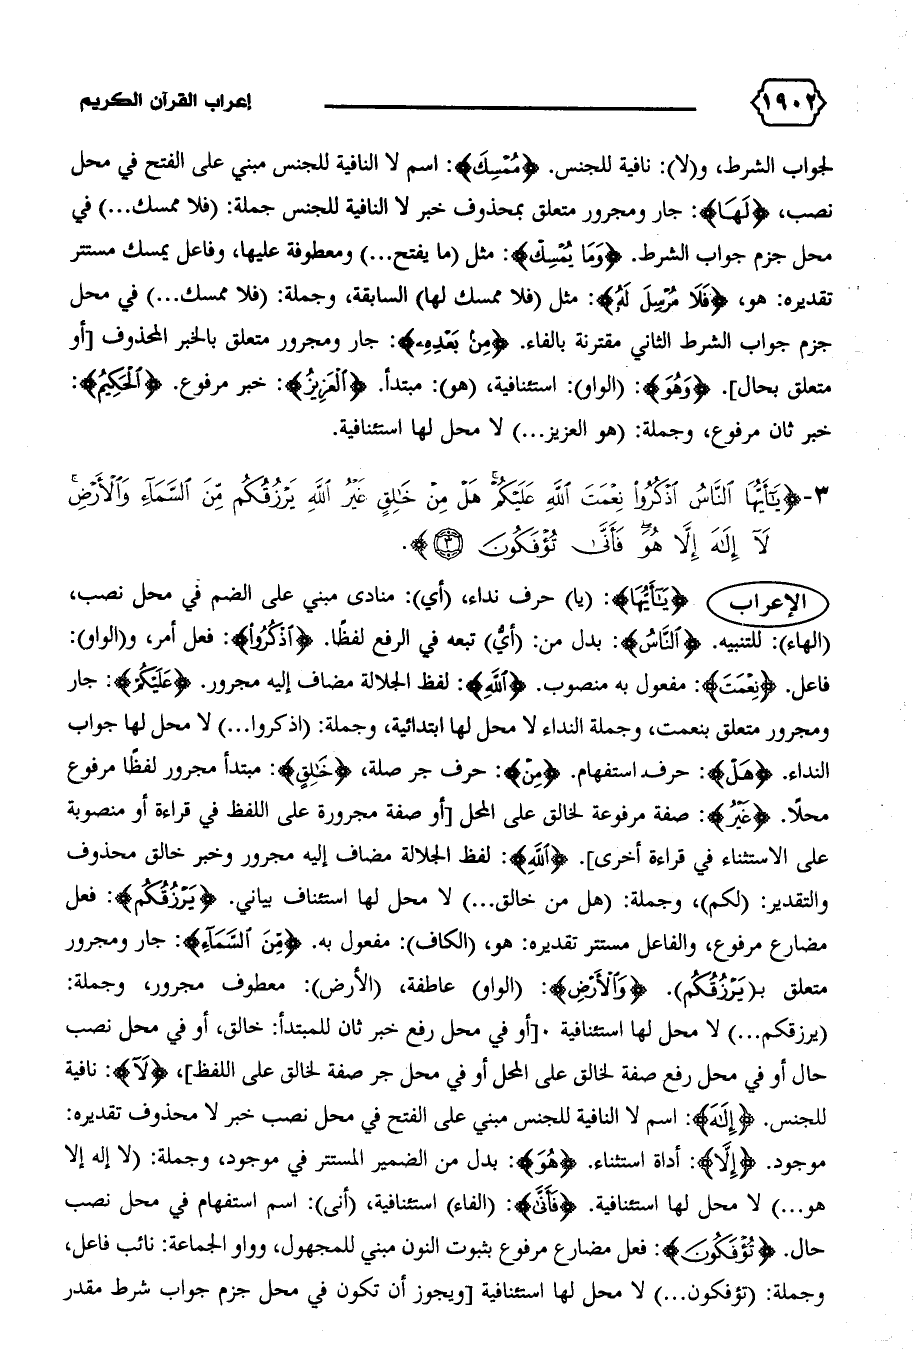 ١٩٠٢ إعراب القرآن الكريم
لجواب الشرط، و(لا): نافية للجنس. ﴿مُمْسِكَ﴾: اسم لا النافية للجنس مبني على الفتح في محل
نصب، ﴿لَهَا﴾: جار ومجرور متعلق بمحذوف خبر لا النافية للجنس جملة: (فلا ممسك...) في
محل جزم جواب الشرط. ﴿وَمَا يُمْسِكْ﴾: مثل (ما يفتح...) ومعطوفة عليها، وفاعل يمسك مستتر
تقديره: هو، ﴿فَلَا مُرْسِلَ لَهُۥ﴾: مثل (فلا ممسك لها) السابقة، وجملة: (فلا ممسك...) في محل
جزم جواب الشرط الثاني مقترنة بالفاء. ﴿مِنۢ بَعْدِهِۦ﴾: جار ومجرور متعلق بالخبر المحذوف [أو
متعلق بحال]. ﴿وَهُوَ﴾: (الواو): استئنافية، (هو): مبتدأ. ﴿ٱلْعَزِيزُ﴾: خبر مرفوع. ﴿ٱلْحَكِيمُ﴾:
خبر ثان مرفوع، وجملة: (هو العزيز...) لا محل لها استئنافية.
٣- ﴿يَٰٓأَيُّهَا ٱلنَّاسُ ٱذْكُرُوا۟ نِعْمَتَ ٱللَّهِ عَلَيْكُمْ ۚ هَلْ مِنْ خَٰلِقٍ غَيْرُ ٱللَّهِ يَرْزُقُكُم مِّنَ ٱلسَّمَآءِ وَٱلْأَرْضِ ۚ
لَآ إِلَٰهَ إِلَّا هُوَ ۖ فَأَنَّىٰ تُؤْفَكُونَ ٣﴾.
الإعراب ﴿يَٰٓأَيُّهَا﴾: (يا) حرف نداء، (أي): منادى مبني على الضم في محل نصب،
(الهاء): للتنبيه. ﴿ٱلنَّاسُ﴾: بدل من: (أيُّ) تبعه في الرفع لفظًا. ﴿ٱذْكُرُوا۟﴾: فعل أمر، و(الواو):
فاعل. ﴿نِعْمَتَ﴾: مفعول به منصوب. ﴿ٱللَّهِ﴾: لفظ الجلالة مضاف إليه مجرور. ﴿عَلَيْكُمْ﴾: جار
ومجرور متعلق بنعمت، وجملة النداء لا محل لها ابتدائية، وجملة: (اذكروا...) لا محل لها جواب
النداء. ﴿هَلْ﴾: حرف استفهام. ﴿مِنْ﴾: حرف جر صلة، ﴿خَٰلِقٍ﴾: مبتدأ مجرور لفظًا مرفوع
محلًا. ﴿غَيْرُ﴾: صفة مرفوعة لخالق على المحل [أو صفة مجرورة على اللفظ في قراءة أو منصوبة
على الاستثناء في قراءة أخرى]. ﴿ٱللَّهِ﴾: لفظ الجلالة مضاف إليه مجرور وخبر خالق محذوف
والتقدير: (لكم)، وجملة: (هل من خالق...) لا محل لها استئناف بياني. ﴿يَرْزُقُكُم﴾: فعل
مضارع مرفوع، والفاعل مستتر تقديره: هو، (الكاف): مفعول به. ﴿مِّنَ ٱلسَّمَآءِ﴾: جار ومجرور
متعلق بـ(يَرْزُقُكُم). ﴿وَٱلْأَرْضِ﴾: (الواو) عاطفة، (الأرض): معطوف مجرور، وجملة:
(يرزقكم...) لا محل لها استئنافية ٠[أو في محل رفع خبر ثان للمبتدأ: خالق، أو في محل نصب
حال أو في محل رفع صفة لخالق على المحل أو في محل جر صفة لخالق على اللفظ]، ﴿لَآ﴾: نافية
للجنس. ﴿إِلَٰهَ﴾: اسم لا النافية للجنس مبني على الفتح في محل نصب خبر لا محذوف تقديره:
موجود. ﴿إِلَّا﴾: أداة استثناء. ﴿هُوَ﴾: بدل من الضمير المستتر في موجود، وجملة: (لا إله إلا
هو...) لا محل لها استئنافية. ﴿فَأَنَّىٰ﴾: (الفاء) استئنافية، (أنى): اسم استفهام في محل نصب
حال. ﴿تُؤْفَكُونَ﴾: فعل مضارع مرفوع بثبوت النون مبني للمجهول، وواو الجماعة: نائب فاعل،
وجملة: (تؤفكون...) لا محل لها استئنافية [ويجوز أن تكون في محل جزم جواب شرط مقدر